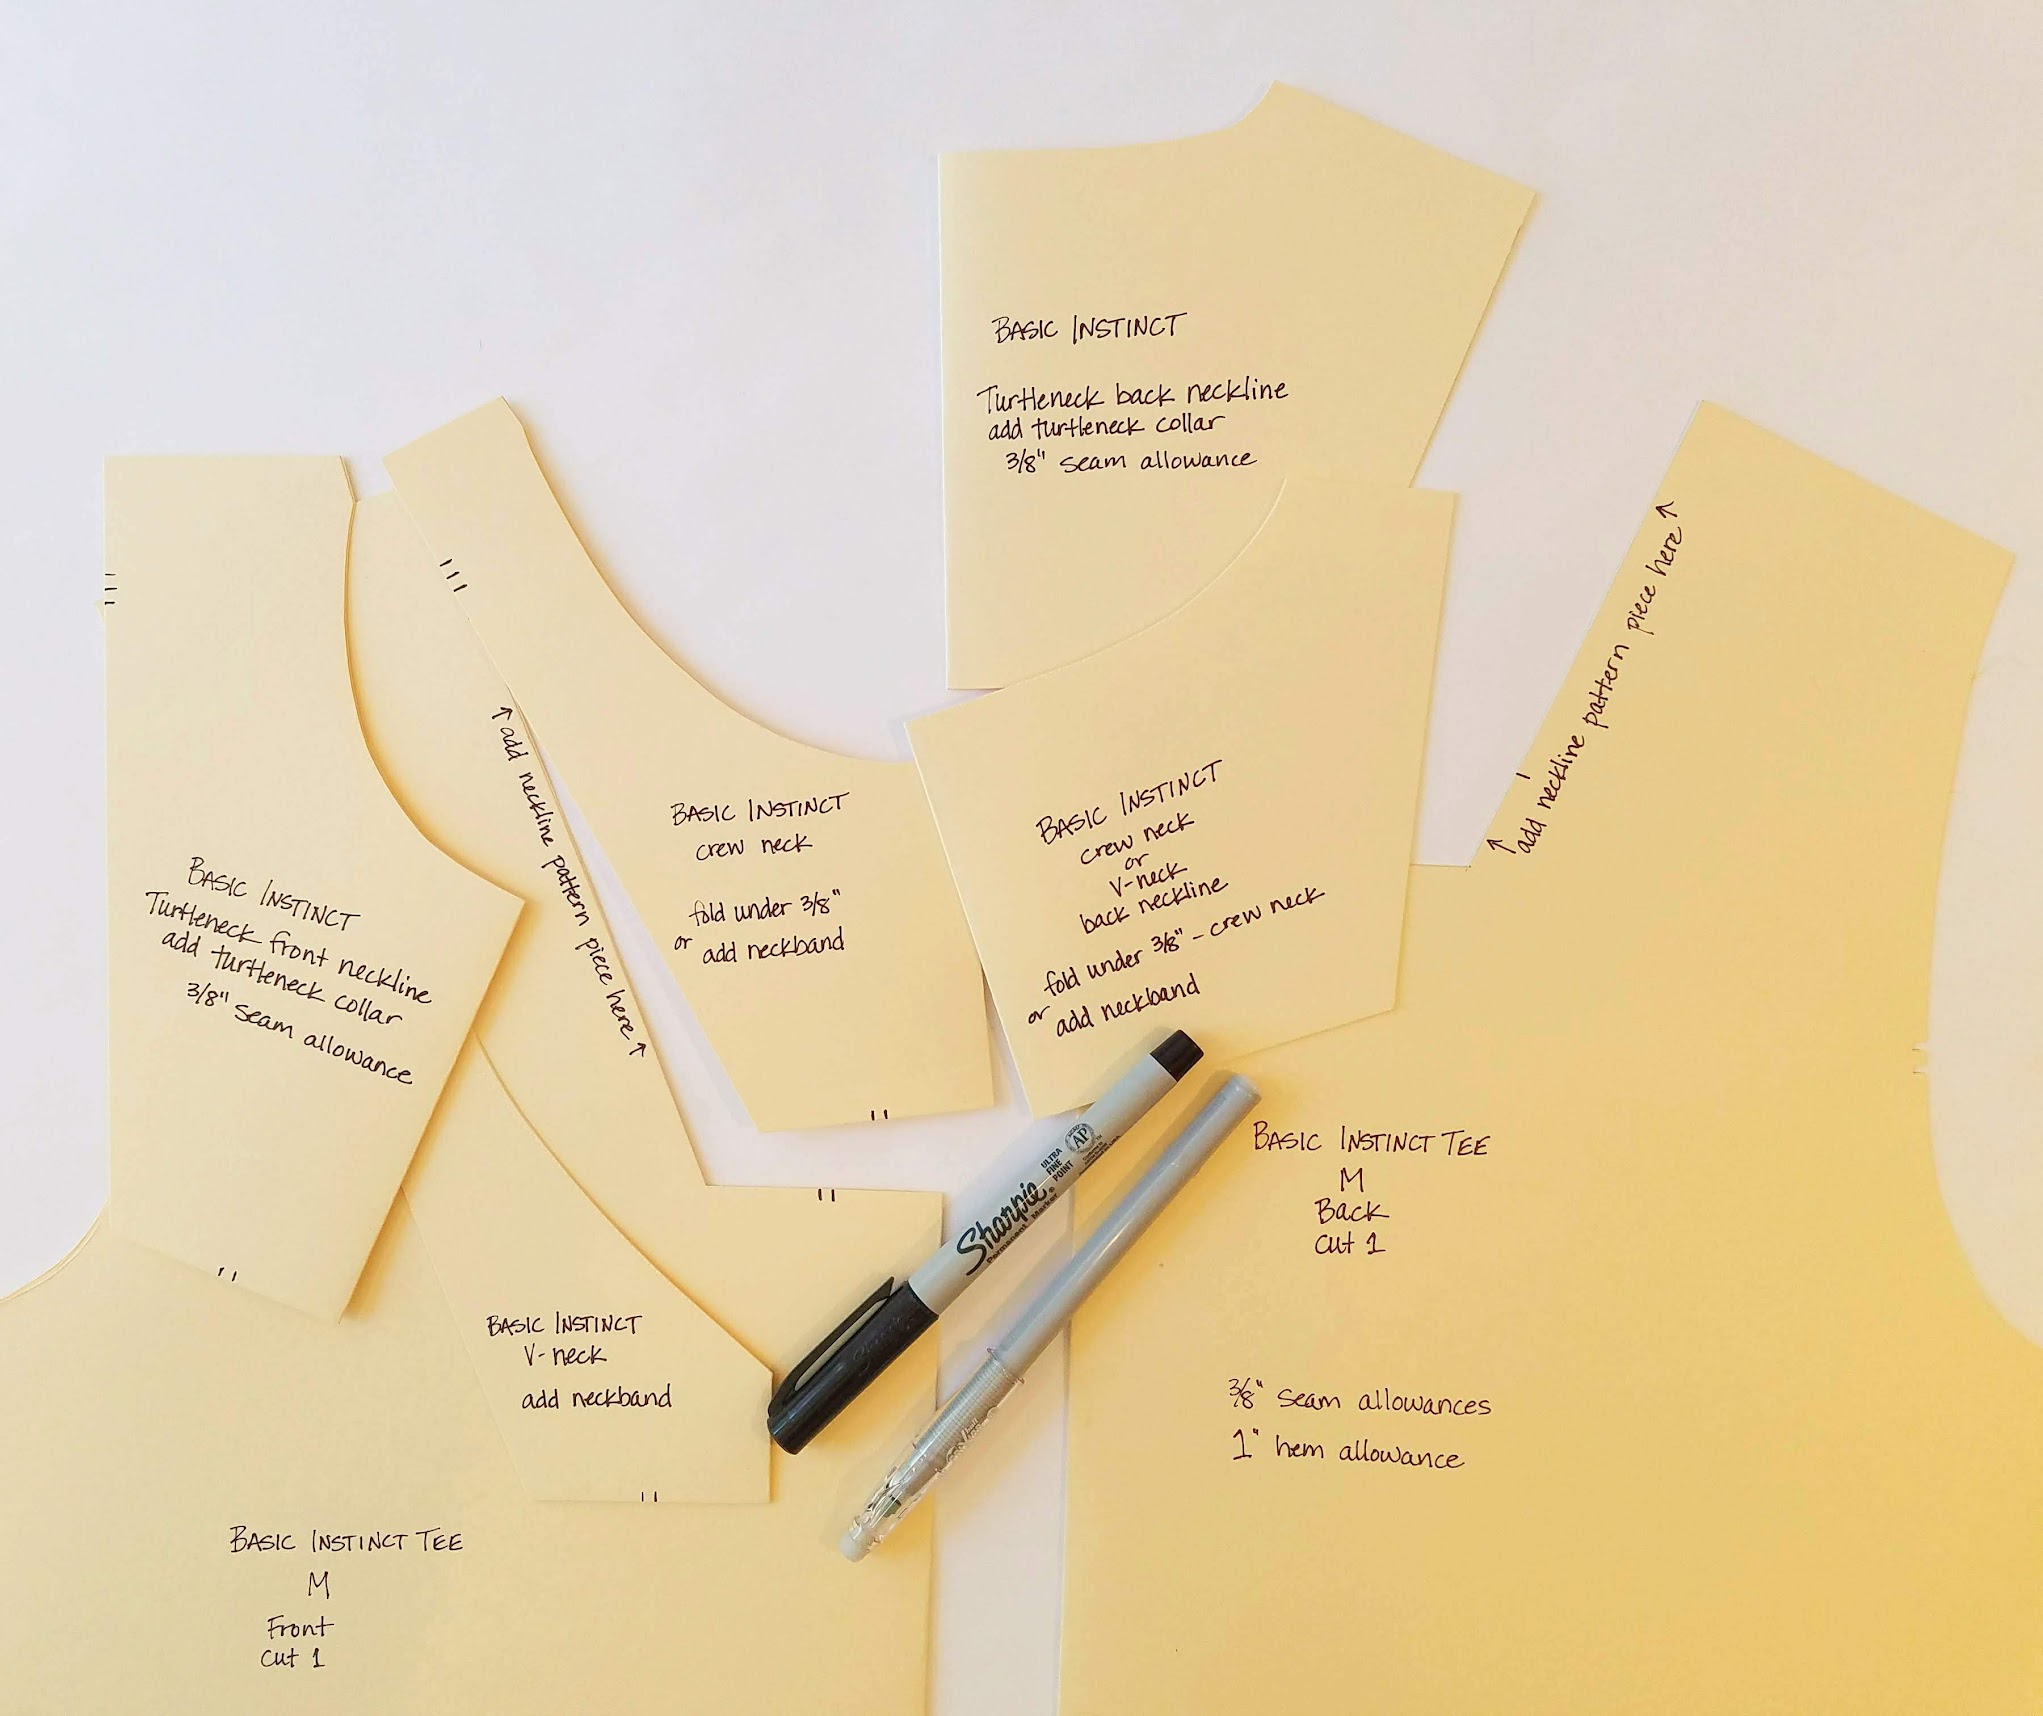 BASIC INSTINCT
Turtleneck back neckline
add turtleneck collar
3/8" seam allowance
↑ add neckline pattern piece here ↑
BASIC INSTINCT
crew neck
or
V-neck
back neckline
fold under 3/8" - crew neck
or add neckband
BASIC INSTINCT
crew neck
fold under 3/8"
or add neckband
↑ add neckline pattern piece here ↑
BASIC INSTINCT
Turtleneck front neckline
add turtleneck collar
3/8" seam allowance
BASIC INSTINCT
V-neck
add neckband
BASIC INSTINCT TEE
M
Front
Cut 1
Sharpie
Permanent Marker
ULTRA
FINE
POINT
AP
BASIC INSTINCT TEE
M
Back
Cut 1
3/8" seam allowances
1" hem allowance